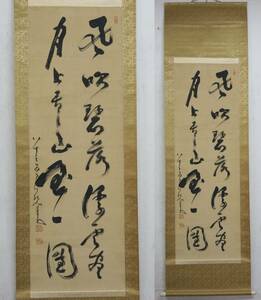 風吹碧落浮雲盡
月上青山玉一團
風吹碧落浮雲盡
月上青山玉一團